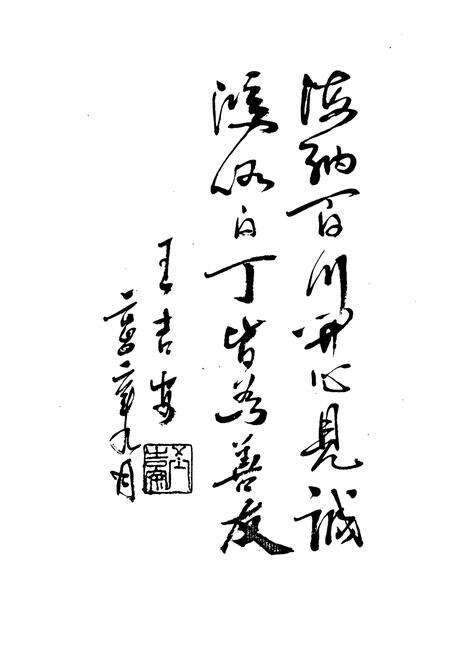 海纳百川开心見诚
鸿儒白丁皆为善友
王吉安
二〇〇二年九月